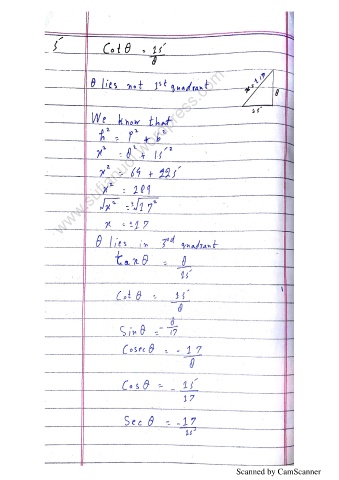 5
Cotθ = 15/8
θ lies not 1st quadrant
x = 17
8
15
We know that
h² = p² + b²
x² = 8² + 15²
x² = 64 + 225
x² = 289
√x² = ±√17²
x = ±17
θ lies in 3rd quadrant
tanθ = 8/15
Cotθ = 15/8
Sinθ = -8/17
Cosecθ = -17/8
Cosθ = -15/17
Secθ = -17/15
Scanned by CamScanner